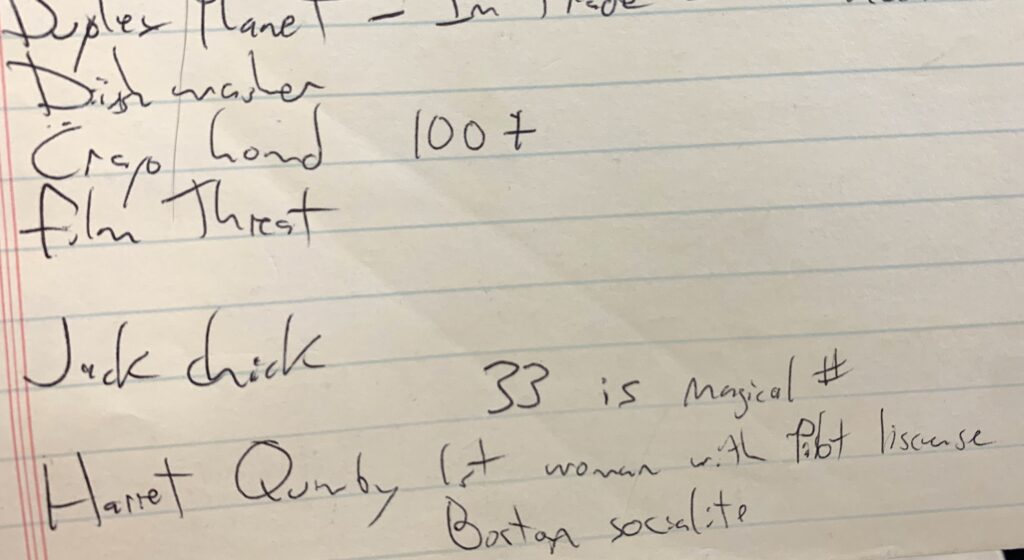 Duplex Planet - In Trade
Dishwasher
Crap hound 100+
Film Threat
Jack Chick
33 is magical #
Harret Qumby 1st woman with pilot liscense
Boston socialite